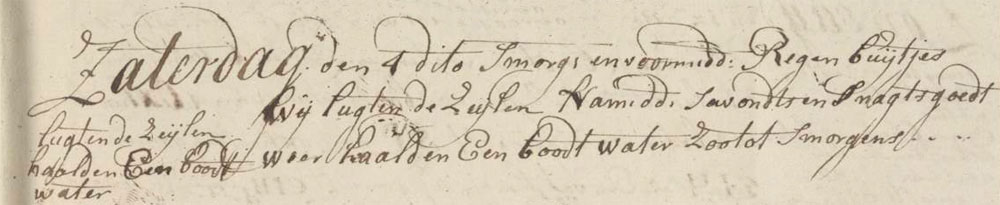 Zaterdag den 4 dito Smorgs en voormidd: Regen buijtjes
Wij lugten de Zeijlen Namidd: Savondts en Snagts goedt
weer haalden Een boodt water Zootot Smorgens . . . .
lugten de Zeijlen
haalden Een boodt
water